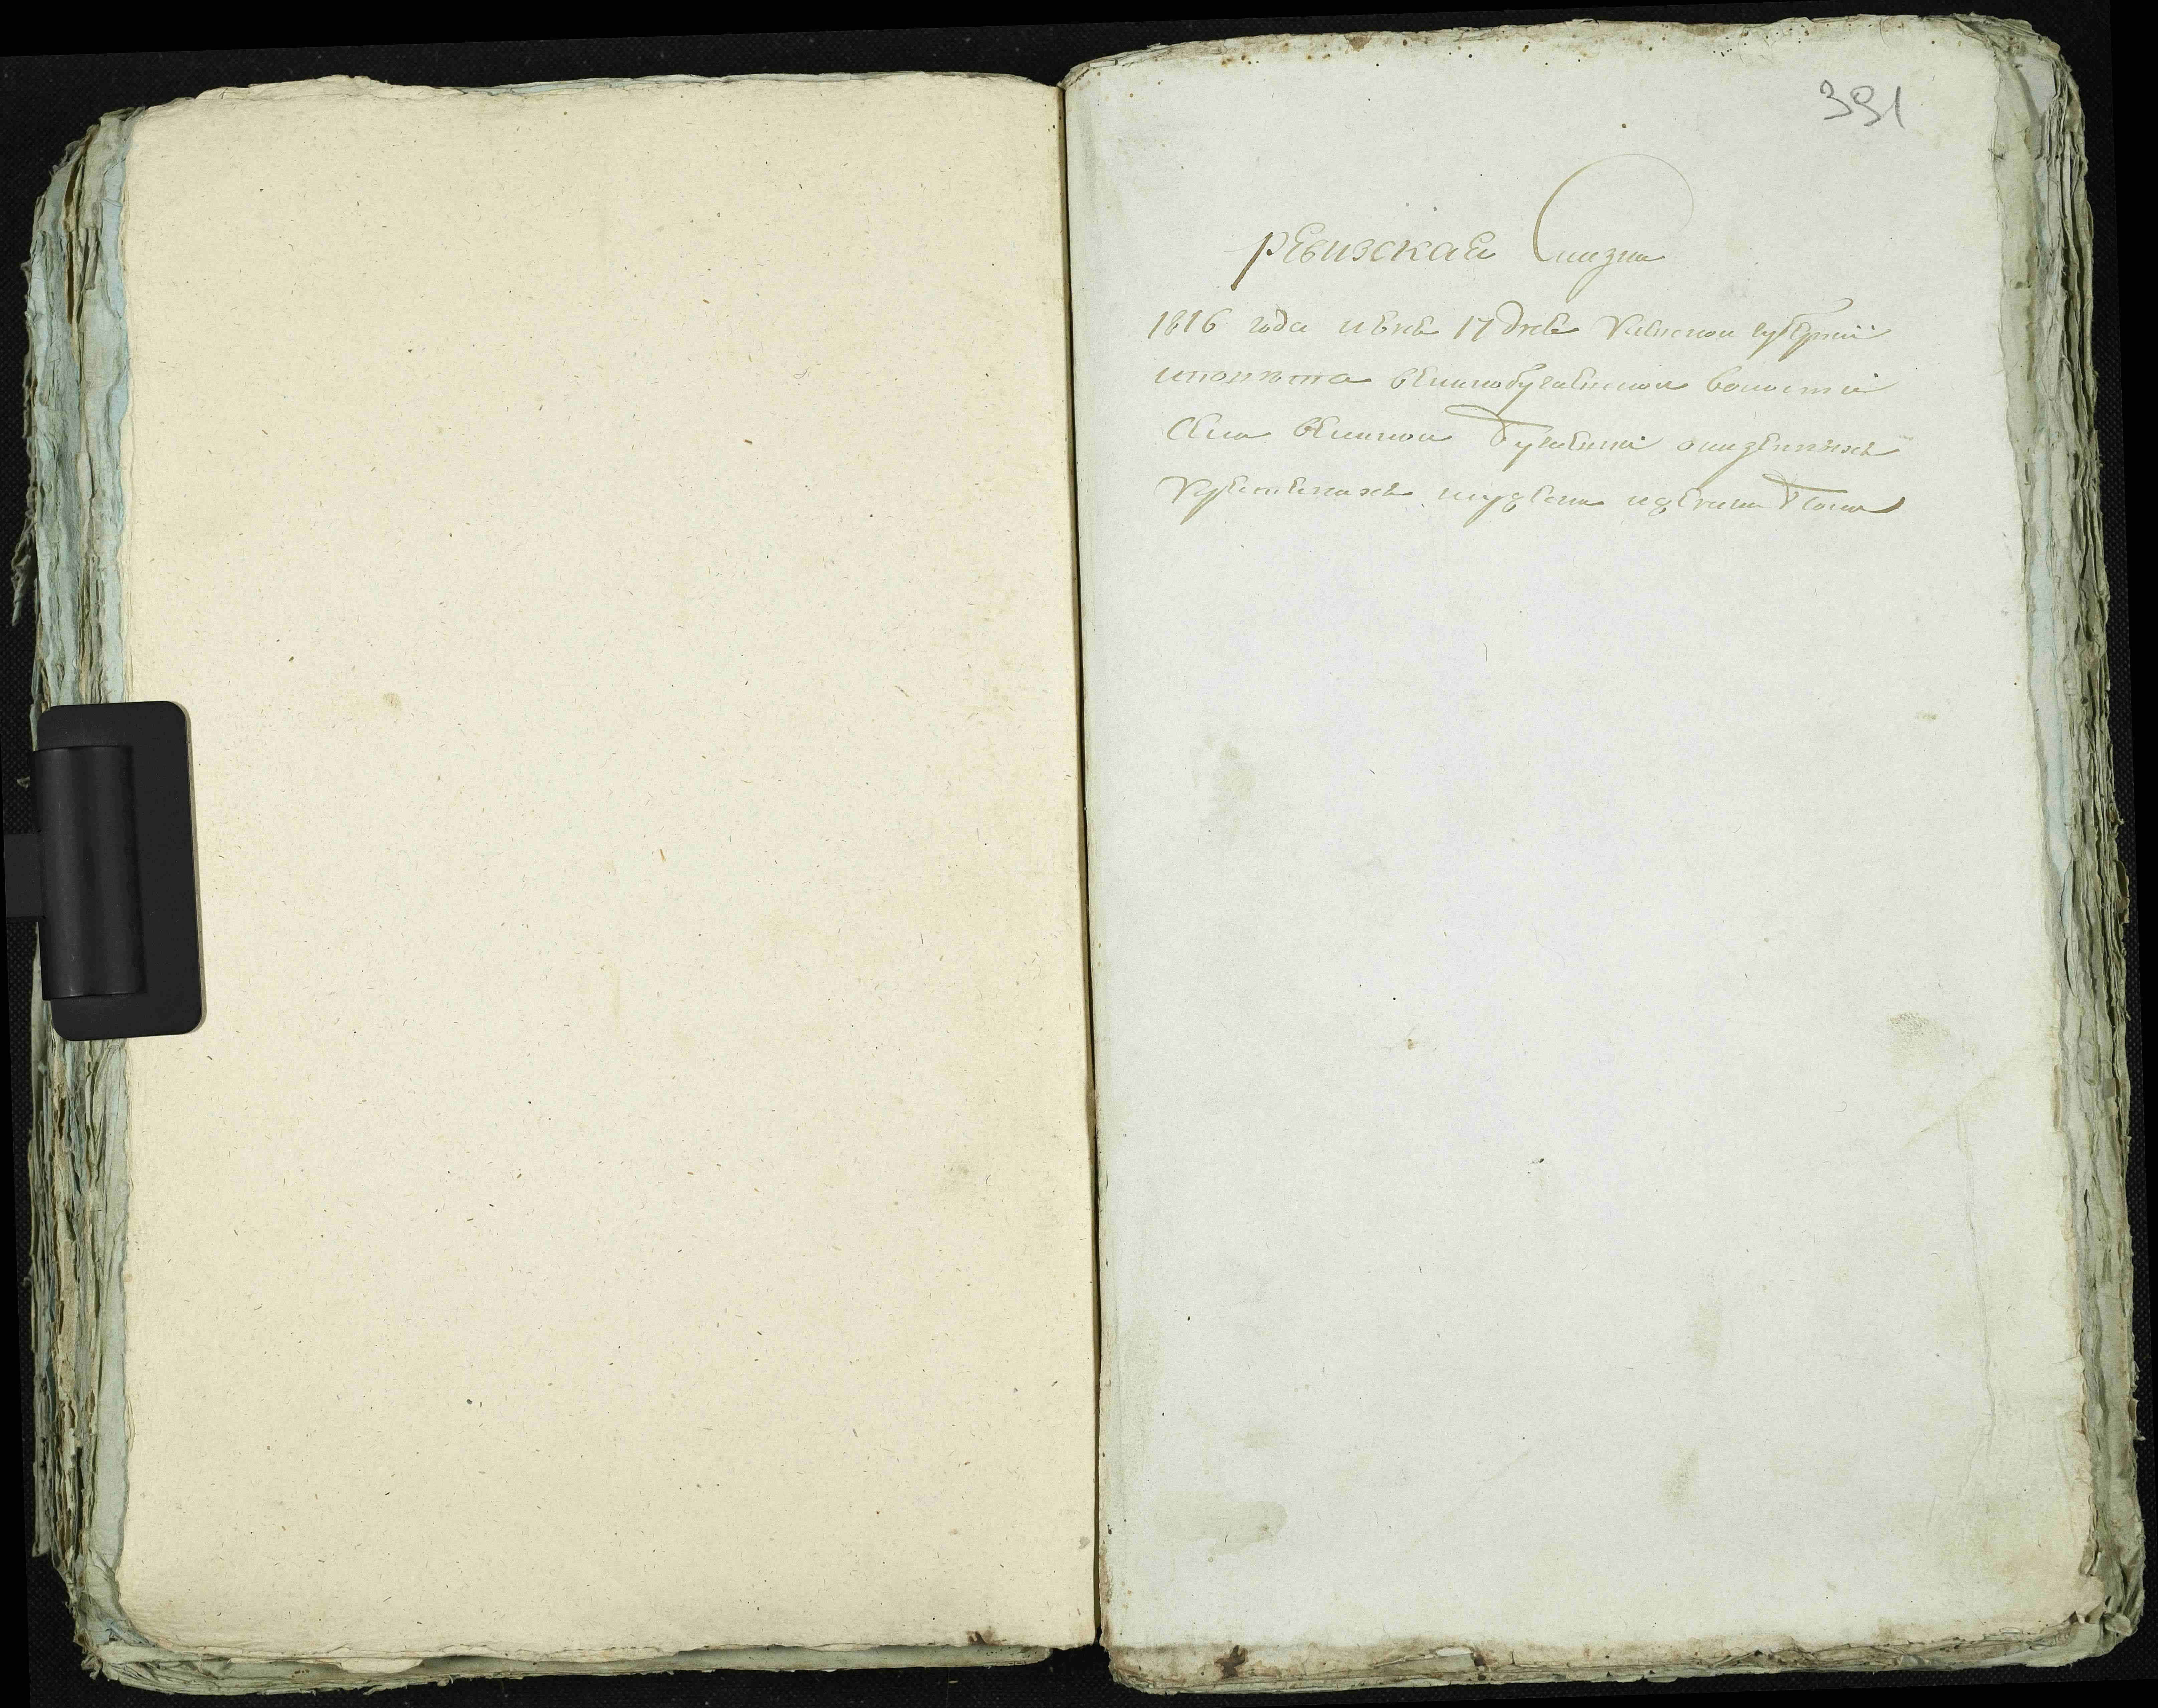 391
ревизская Сказка
1816 года июня 17 дня Киевской губернии
и повѣта великобугаевской волости
села великой Бугаевки о казенныхъ
Крестьянахъ мужеска и женска пола